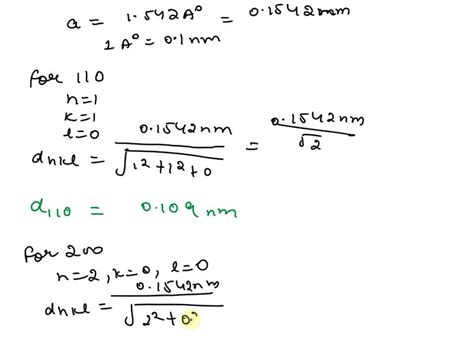 a = 1.542A° = 0.1542nm
1A° = 0.1nm
for 110
h=1
k=1
l=0
dhkl = 0.1542nm / √1²+1²+0 = 0.1542nm / √2
d110 = 0.109 nm
for 200
h=2, k=0, l=0
dhkl = 0.1542nm / √2²+0²